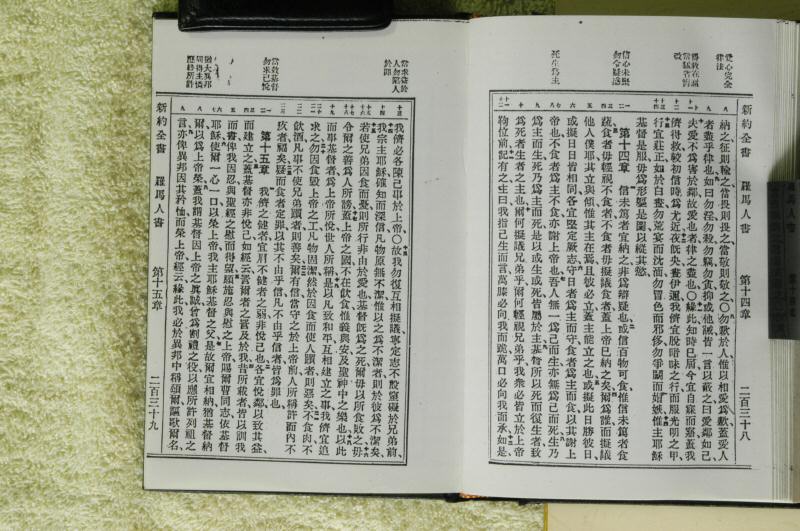 新約全書　羅馬人書　第十四章　二百三十八
愛心完全律法
納之征則輸之當畏則畏之當敬則敬之〇勿歉於人惟以相愛爲歉蓋愛人
者盡乎律也如曰勿淫勿殺勿竊勿貪抑或他誡皆一言以蔽之曰愛鄰如己
夫愛不爲害於鄰故愛也者律之盡也〇緣此知時已屆今宜自寐而寤蓋我
儕得救較初信時爲尤近夜旣央晝伊邇我儕宜脫暗昧之行而服光明之甲
行宜莊正如於日晝勿荒宴而沈湎勿冒色而邪侈勿爭鬭而媢嫉惟主耶穌
基督是服毋爲形軀是圖以縱其慾
第十四章　信未篤者宜納之非爲辯疑也或信百物可食惟信未篤者食
蔬食者毋輕視不食者不食者毋擬議食者蓋上帝已納之矣爾爲誰而擬議
他人僕耶其立與傾惟其主在焉且彼必立蓋主能立之也或擬此日勝彼日
或擬日日皆相同各宜堅定厥志守日者爲主而守食者爲主而食以其謝上
帝也不食者爲主不食亦謝上帝也吾人無一爲己而生亦無爲己而死生乃
爲主而生死乃爲主而死是以或生或死皆屬於主基督所以死而復生者致
爲死者生者之主也爾何擬議兄弟乎爾何輕視兄弟乎我衆必皆立於上帝
鞫位前記有之主曰我指己生而言萬膝必向我而跪萬口必向我而承如是
新約全書　羅馬人書　第十五章　二百三十九
我儕必各陳己事於上帝〇故我勿復互相擬議寧定志不設窒礙於兄弟前
我宗主耶穌確知而深信凡物原無不潔惟以之爲不潔者則於彼爲不潔矣
若使兄弟因食而憂則所行非由於愛也基督旣爲之死爾毋以所食敗之毋
令爾之善爲人所謗蓋上帝之國不在飲食惟義與安及聖神中之樂也以此
而事基督者爲上帝所悅世人所稱是以凡致和平互相建立之事我儕宜追
求之勿因食毀上帝之工凡物固潔然於因食而使人躓者則惡矣不食肉不
飲酒凡事不使兄弟躓者則善矣爾有信當守之於上帝前人所稱許而内不
疚者福矣疑而食者定罪以其不由乎信凡不由乎信者皆爲罪也
第十五章　我儕之健者宜肩不健者之弱非悅己也各宜悅鄰以致其益
而建立之蓋基督亦非悅己如經云詈爾者之詈及於我昔所載者皆以訓我
而書俾我因忍與聖經之慰而得望願施忍與慰之上帝賜爾曹同志依基督
耶穌使爾一心一口以榮上帝我主耶穌基督之父是故爾宜相納猶基督納
爾以爲上帝榮蓋我謂基督因上帝之眞誠曾爲割禮之役以應所許列祖之
言亦俾異邦因其矜恤而榮上帝經云緣此我必於異邦中稱頌爾謳歌爾名